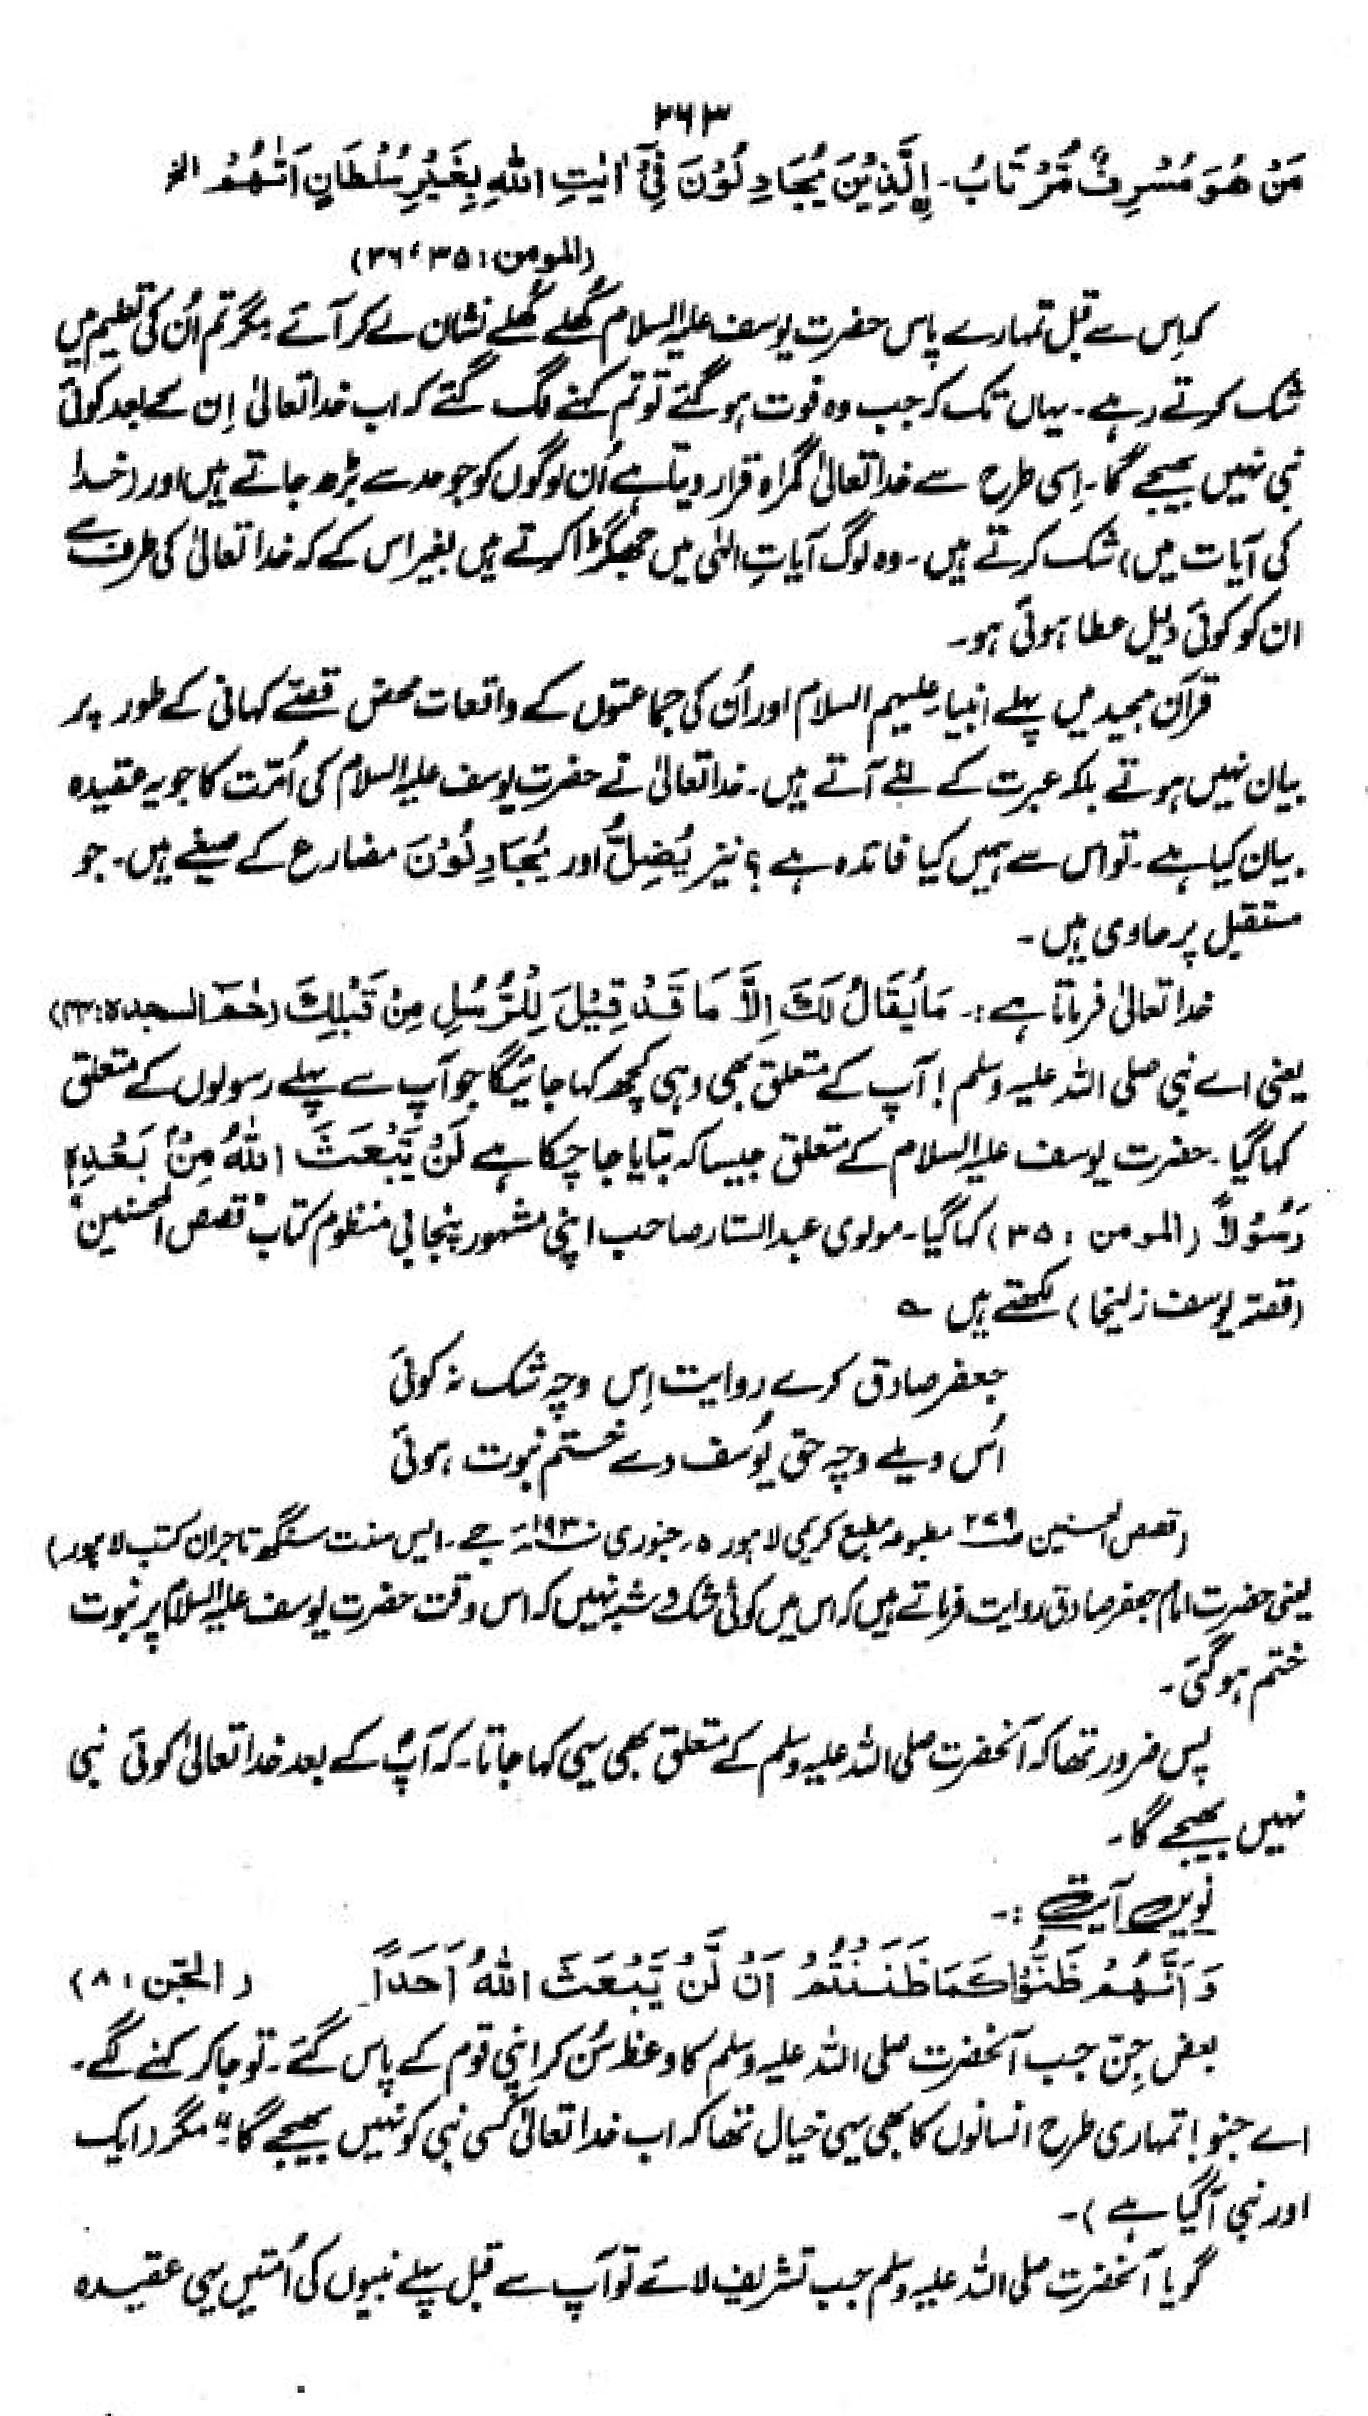 ۳۶۳
مَنْ هُوَ مُسْرِفٌ مُّرْتَابُ۔ اِۨلَّذِيْنَ يُجَادِلُوْنَ فِيْٓ اٰيٰتِ اللّٰهِ بِغَيْرِ سُلْطَانٍ اَتٰهُمْ الخ
(المومن: ۳۵، ۳۶)
کہ اِس سے قبل تمہارے پاس حضرت یوسف علیہ السلام کُھلے کُھلے نشان لے کر آئے۔ مگر تم اُن کی تعلیم میں
شک کرتے رہے۔ یہاں تک کہ جب وہ فوت ہو گئے تو تم کہنے لگ گئے کہ اب خدا تعالیٰ اِن کے بعد کوئی
نبی نہیں بھیجے گا۔ اِسی طرح سے خدا تعالیٰ گمراہ قرار دیتا ہے اُن لوگوں کو جو حد سے بڑھ جاتے ہیں اور (خدا
کی آیات میں) شک کرتے ہیں۔ وہ لوگ آیاتِ الٰہی میں جھگڑا کرتے ہیں بغیر اس کے کہ خدا تعالیٰ کی طرف سے
ان کو کوئی دلیل عطا ہوئی ہو۔
قرآن مجید میں پہلے انبیاء علیہم السلام اور اُن کی جماعتوں کے واقعات محض قصّے کہانی کے طور پر
بیان نہیں ہوتے بلکہ عبرت کے لئے آتے ہیں۔ خدا تعالیٰ نے حضرت یوسف علیہ السلام کی اُمّت کا جو یہ عقیدہ
بیان کیا ہے۔ تو اس سے ہمیں کیا فائدہ ہے؟ نیز يُضِلُّ اور يُجَادِلُوْنَ مضارع کے صیغے ہیں۔ جو
مستقبل پر حاوی ہیں۔
خدا تعالیٰ فرماتا ہے:۔ مَا يُقَالُ لَكَ اِلَّا مَا قَدْ قِيْلَ لِلرُّسُلِ مِنْ قَبْلِكَ (حٰمٓ السجدة: ۴۳)
یعنی اے نبی صلی اللہ علیہ وسلم! آپ کے متعلق بھی وہی کچھ کہا جائیگا جو آپ سے پہلے رسولوں کے متعلق
کہا گیا۔ حضرت یوسف علیہ السلام کے متعلق جیسا کہ بتایا جا چکا ہے لَنْ يَّبْعَثَ اللّٰهُ مِنْۢ بَعْدِهٖ
رَسُوْلًا (المومن: ۳۵) کہا گیا۔ مولوی عبد الستار صاحب اپنی مشہور پنجابی منظوم کتاب "قصص المحسنین"
(قصّہ یوسف زلیخا) لکھتے ہیں ؎
جعفر صادق کرے روایت اِس وچہ شک نہ کوئی
اُس ویلے وچہ حق یُوسف دے ختم نبوت ہوئی
(قصص المحسنین ص۲۷۹ مطبوعہ مطبع کریمی لاہور ۵؍ جنوری ۱۹۳۰ء جے۔ ایس سنت سنگھ تاجران کتب لاہور)
یعنی حضرت امام جعفر صادق روایت فرماتے ہیں کہ اس میں کوئی شک و شبہ نہیں کہ اس وقت حضرت یوسف علیہ السلام پر نبوت
ختم ہو گئی۔
پس ضرور تھا کہ آنحضرت صلی اللہ علیہ وسلم کے متعلق بھی یہی کہا جاتا۔ کہ آپؐ کے بعد خدا تعالیٰ کوئی نبی
نہیں بھیجے گا۔
نویں آیت :۔
وَ اَنَّهُمْ ظَنُّوْا كَمَا ظَنَنْتُمْ اَنْ لَّنْ يَّبْعَثَ اللّٰهُ اَحَدًا۔ (الجن: ۸)
بعض جِنّ جب آنحضرت صلی اللہ علیہ وسلم کا وعظ سُن کر اپنی قوم کے پاس گئے۔ تو جا کر کہنے لگے۔
اے جنو! تمہاری طرح انسانوں کا بھی یہی خیال تھا کہ اب خدا تعالیٰ کسی نبی کو نہیں بھیجے گا" مگر (ایک
اور نبی آ گیا ہے)۔
گویا آنحضرت صلی اللہ علیہ وسلم جب تشریف لائے تو آپ سے قبل پہلے نبیوں کی اُمتیں یہی عقیدہ